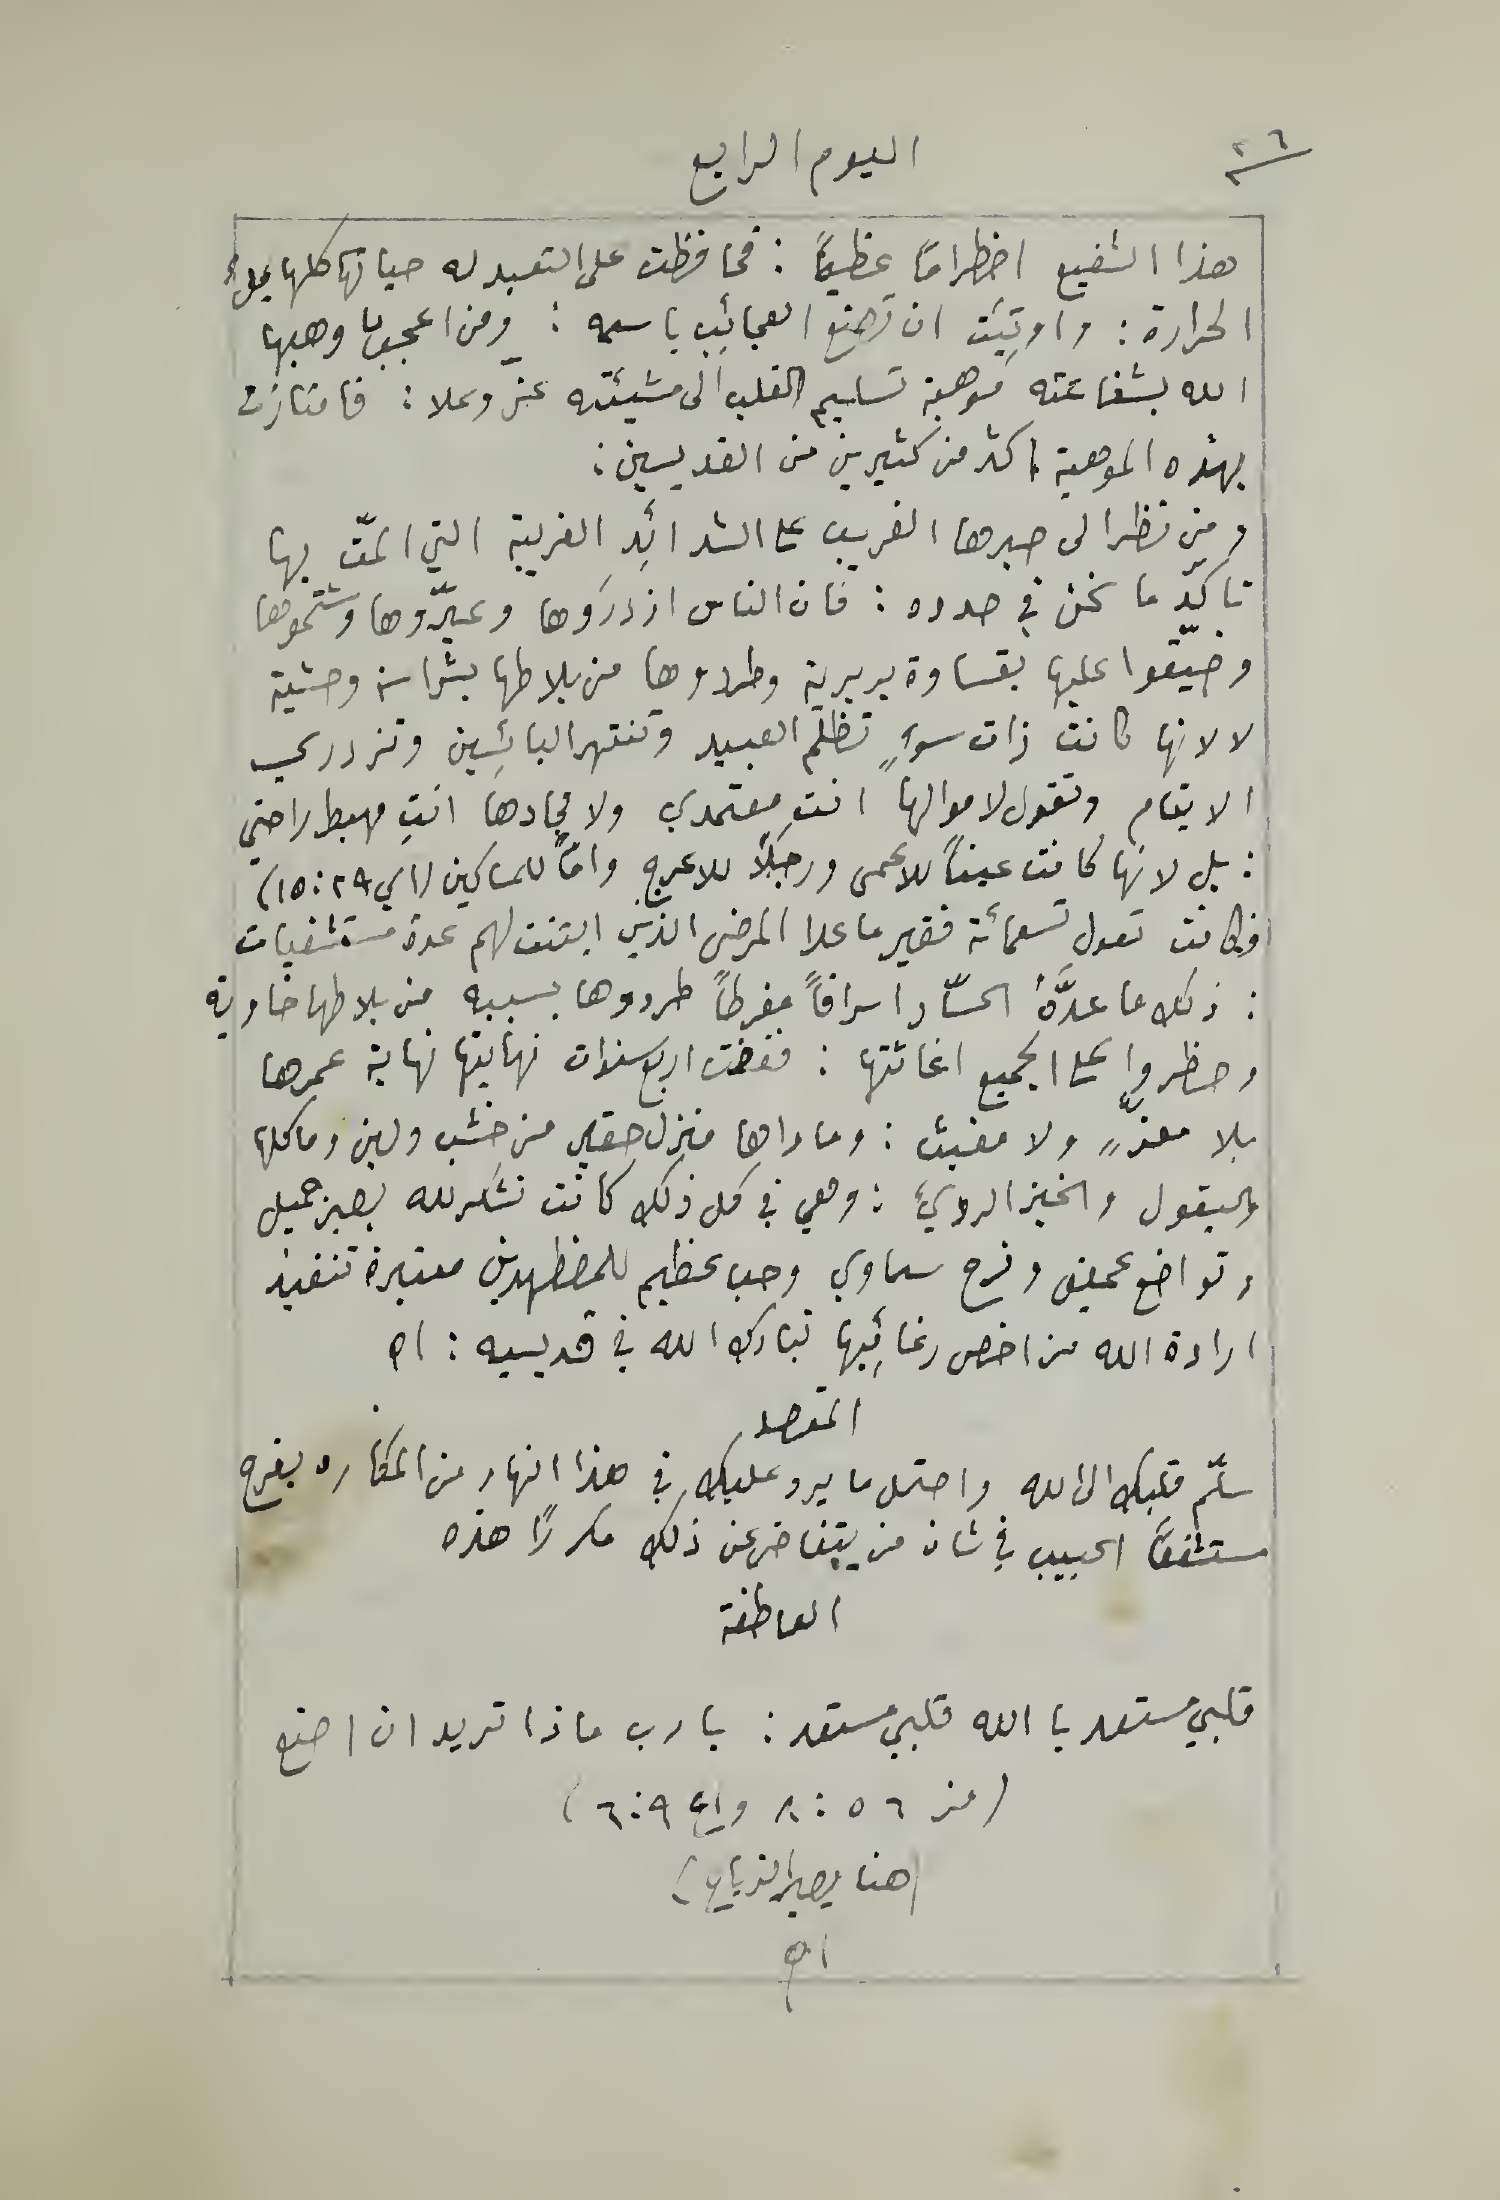 ٢٦
اليوم الرابع
هذا الشفيع اضطرامًا عظيمًا : فحافظت على التعبد له حياتها كلها بملءِ
الحرارة : واوتيَت ان تصنع العجائب باسمه : ومن اعجبها وهبها
الله بشفاعته موهبة تسليم القلب الى مشيئته عزّ وعلا : فامتازت
بهذه الموهبة اكثر من كثيرين من القديسين :
ومن نظر الى صبرها الغريب على الشدائد الغريبة التي المّت بها
تاكدّ ما نحن في صدده : فان الناس ازدرَوها وعيرّوها وشتموها
وضيّقوا عليها بقساوة بربرية وطردوها من بلاطها بشراسة وحشية
لا لانها كانت ذات سوءٍ تظلم العبيد وتنتهر البائسين وتزدري
الايتام وتقول لاموالها انتِ معتمدي ولامجادها انتِ مهبط راحتي
: بل لانها كانت عيناً للاعمى ورجلاً للاعرج واماً للمساكين (اي ٢٩ : ١٥)
فكانت تعول تسعمائة فقير ما عدا المرضى الذين ابتنت لهم عدة مستشفيات
: ذلك ما عدَّهُ الحسّاد اسرافاً مفرطاً طردوها بسببه من بلاطها خاوية
وحظروا على الجميع اغاثتها : فقضت اربع سنوات نهايتها نهاية عمرها
بلا معزٍّ ولا مغيث : وماواها منزل حقير من خشب ولبن وماكلها
البقول والخبز الرديّ : وهي في كل ذلك كانت تشكر لله بصبر جميل
وتواضع عميق وفرح سماوي وحب عظيم للمضطهدين معتبرة تنفيذ
ارادة الله من اخص رغائبها تبارك الله في قديسيه : اه
المقصد
سلّم قلبك الى الله واحتمل ما يرد عليك في هذا النهار من المكاره بفرح
مستشفعًا الحبيب في شان من يتغاضى عن ذلك مكررًا هذه
العاطفة
قلبي مستعد يا الله قلبي مستعد : يا رب ماذا تريد ان اصنع
(مز ٥٦ : ٨ واع ٩ : ٦)
(هنا يصير الزياح)
اه